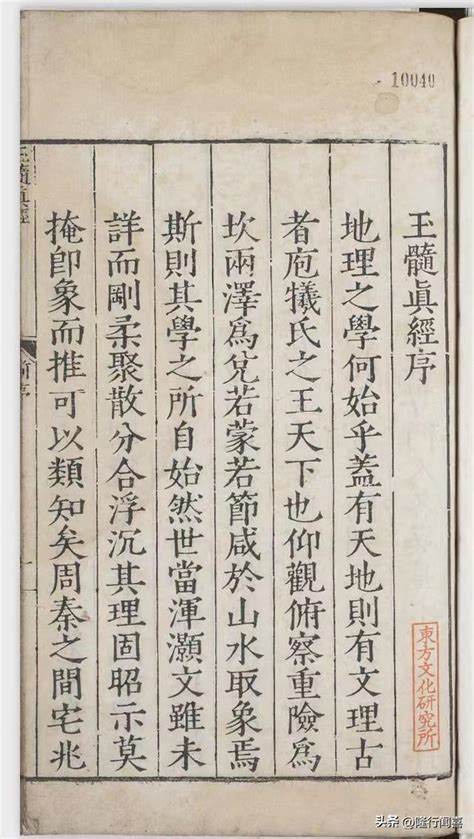 10040
玉髓眞經序
東方文化研究所
地理之學何始乎蓋有天地則有文理古
者庖犧氏之王天下也仰觀俯察重險爲
坎兩澤爲兌若蒙若節咸於山水取象焉
斯則其學之所自始然世當渾灝文雖未
詳而剛柔聚散分合浮沉其理固昭示莫
掩卽象而推可以類知矣周秦之間宅兆
头条 @隆行闻喜